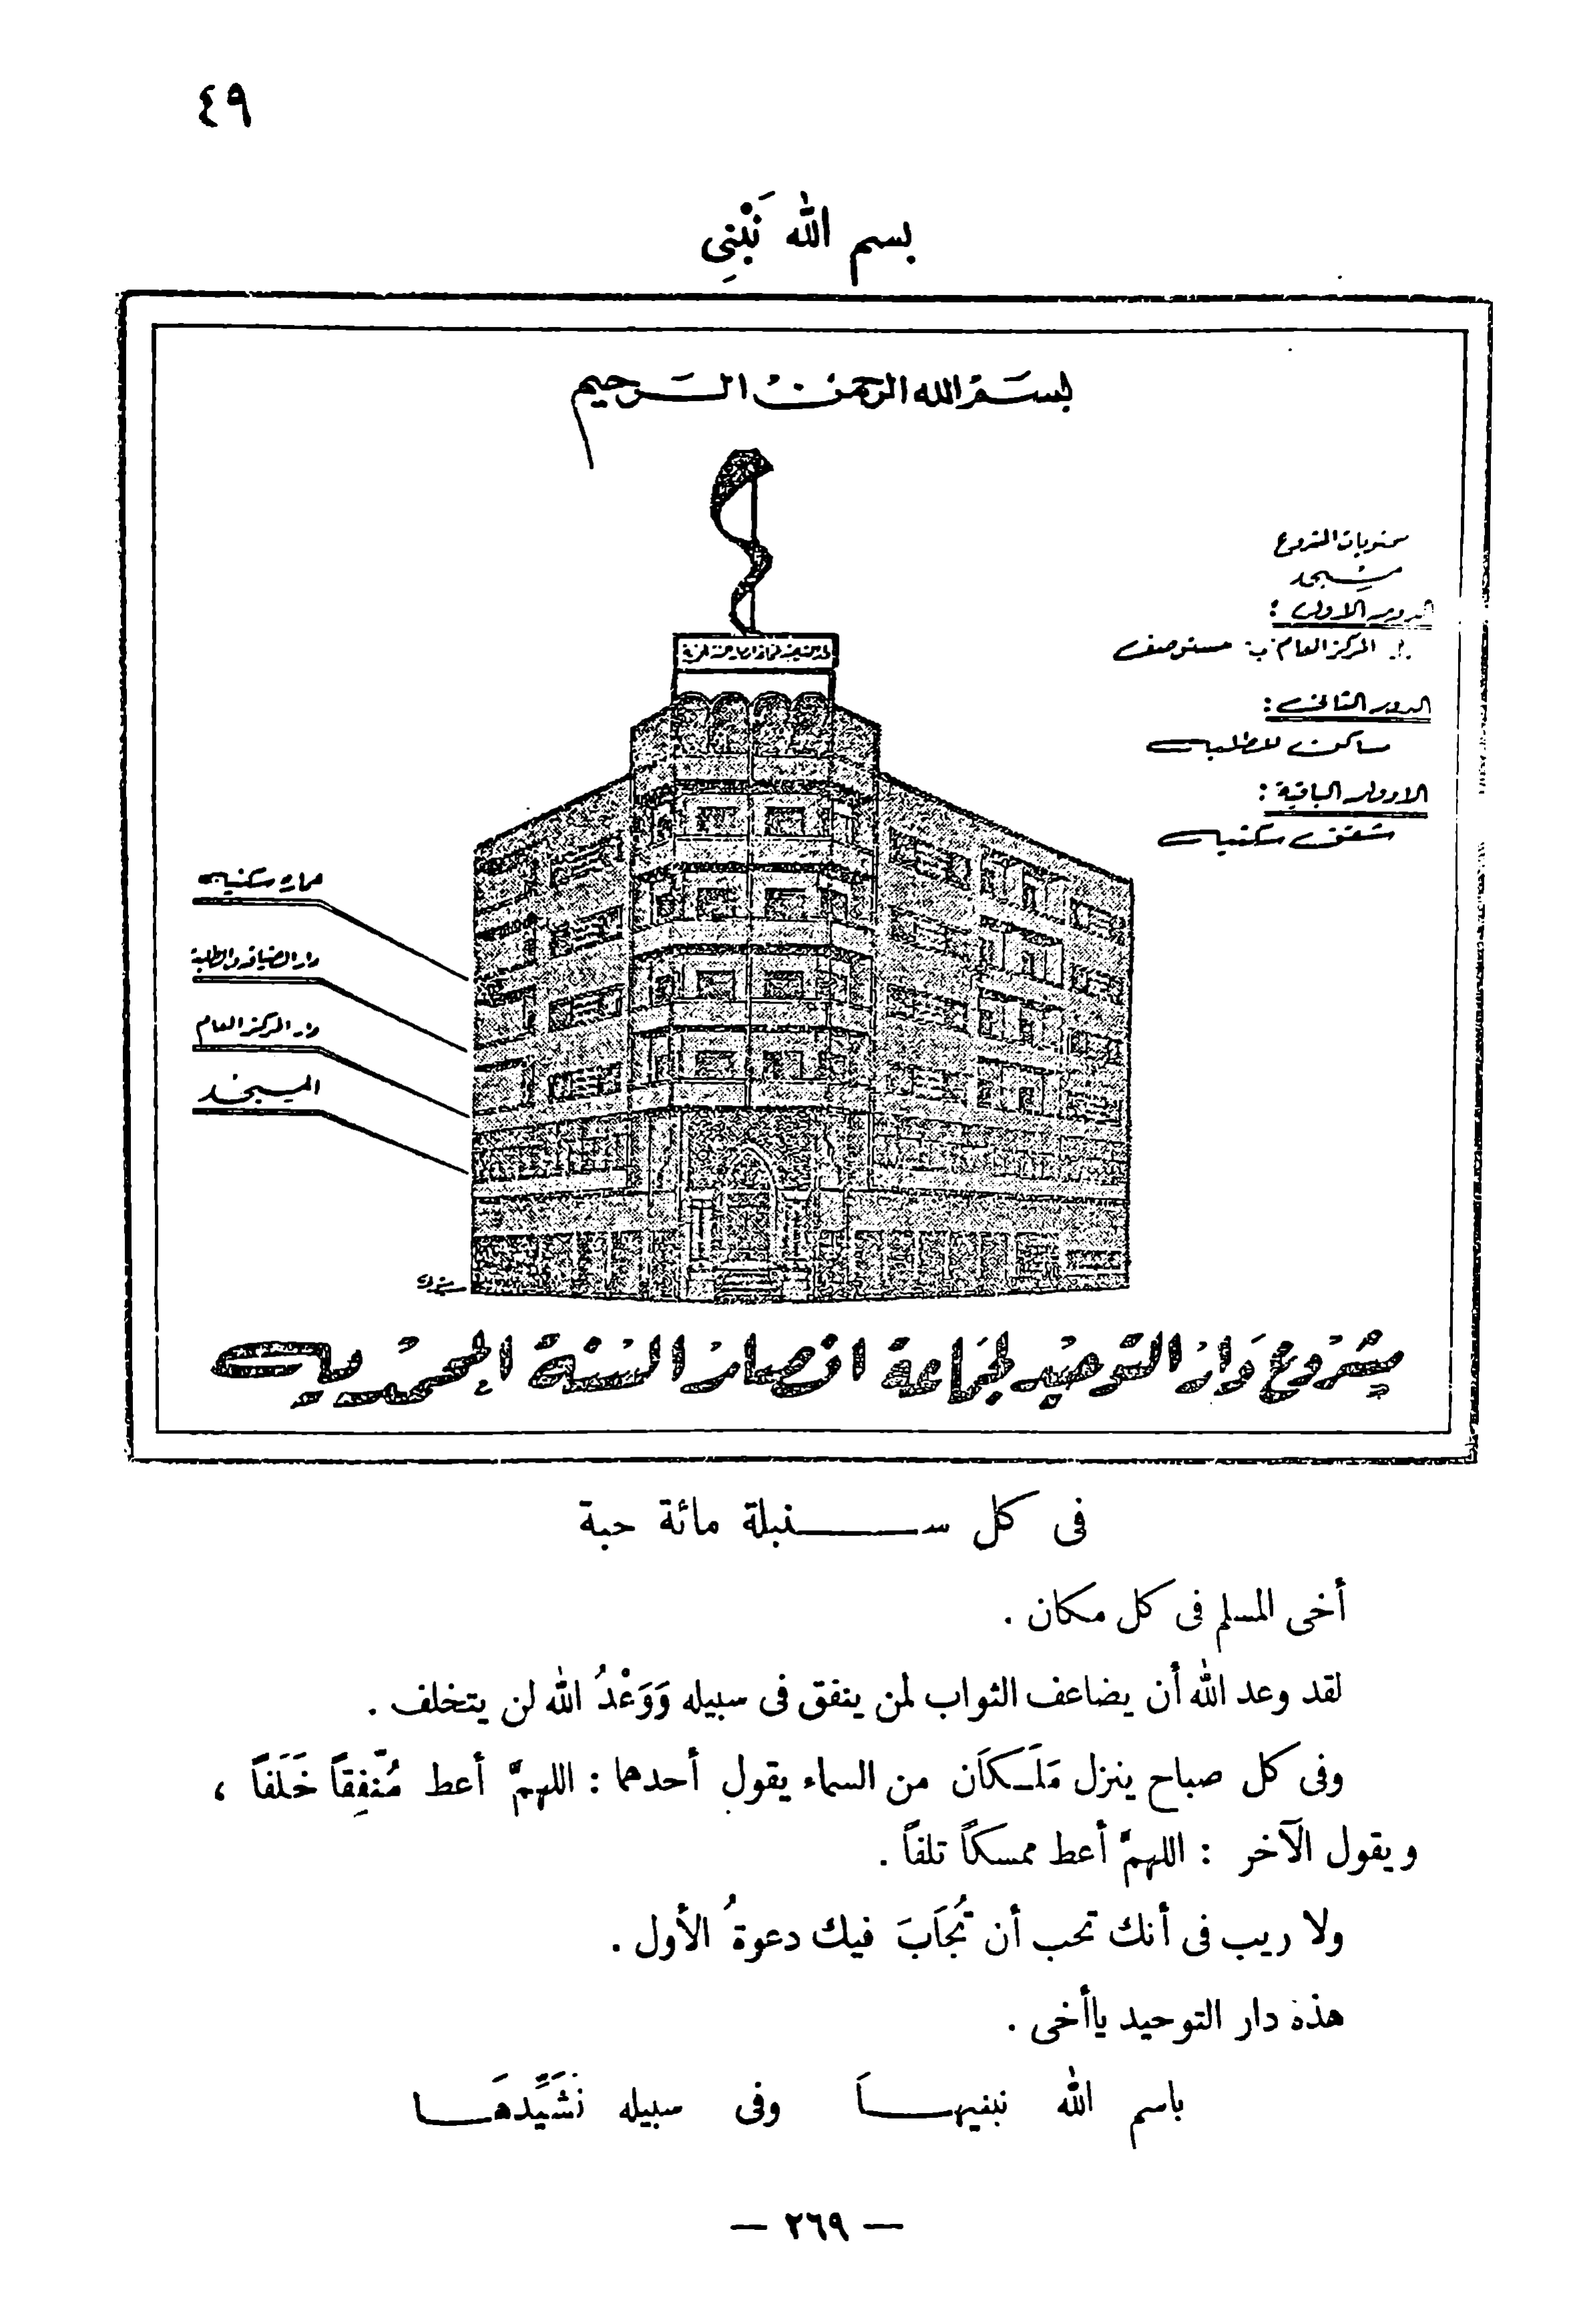 ٤٩
بسم الله نَبْنِي
بسم الله الرحمن الرحيم
محتويات المشروع
مسجد
الدور الاول :
المركز العام ب مستوصف
الدور الثانى :
مساكن للطلبة
الادوار الباقية :
شقق سكنية
عمارة سكنية
دار الضيافة والطلبة
دار المركز العام
المسجد
مشروع دار التوحيد لجماعة انصار السنة المحمدية
فى كل ســـنبلة مائة حبة
أخى المسلم فى كل مكان .
لقد وعد الله أن يضاعف الثواب لمن ينفق فى سبيله وَوَعْدُ الله لن يتخلف .
وفى كل صباح ينزل مَلَكَان من السماء يقول أحدهما : اللهمَّ أعط مُنْفِقاً خَلَفاً ،
ويقول الآخر : اللهمَّ أعط ممسكاً تلفاً .
ولا ريب فى أنك تحب أن تُجَابَ فيك دعوةُ الأول .
هذه دار التوحيد ياأخى .
باسم الله نبنيهــا وفى سبيله نَشَيِّدهَــا
— ٢٦٩ —